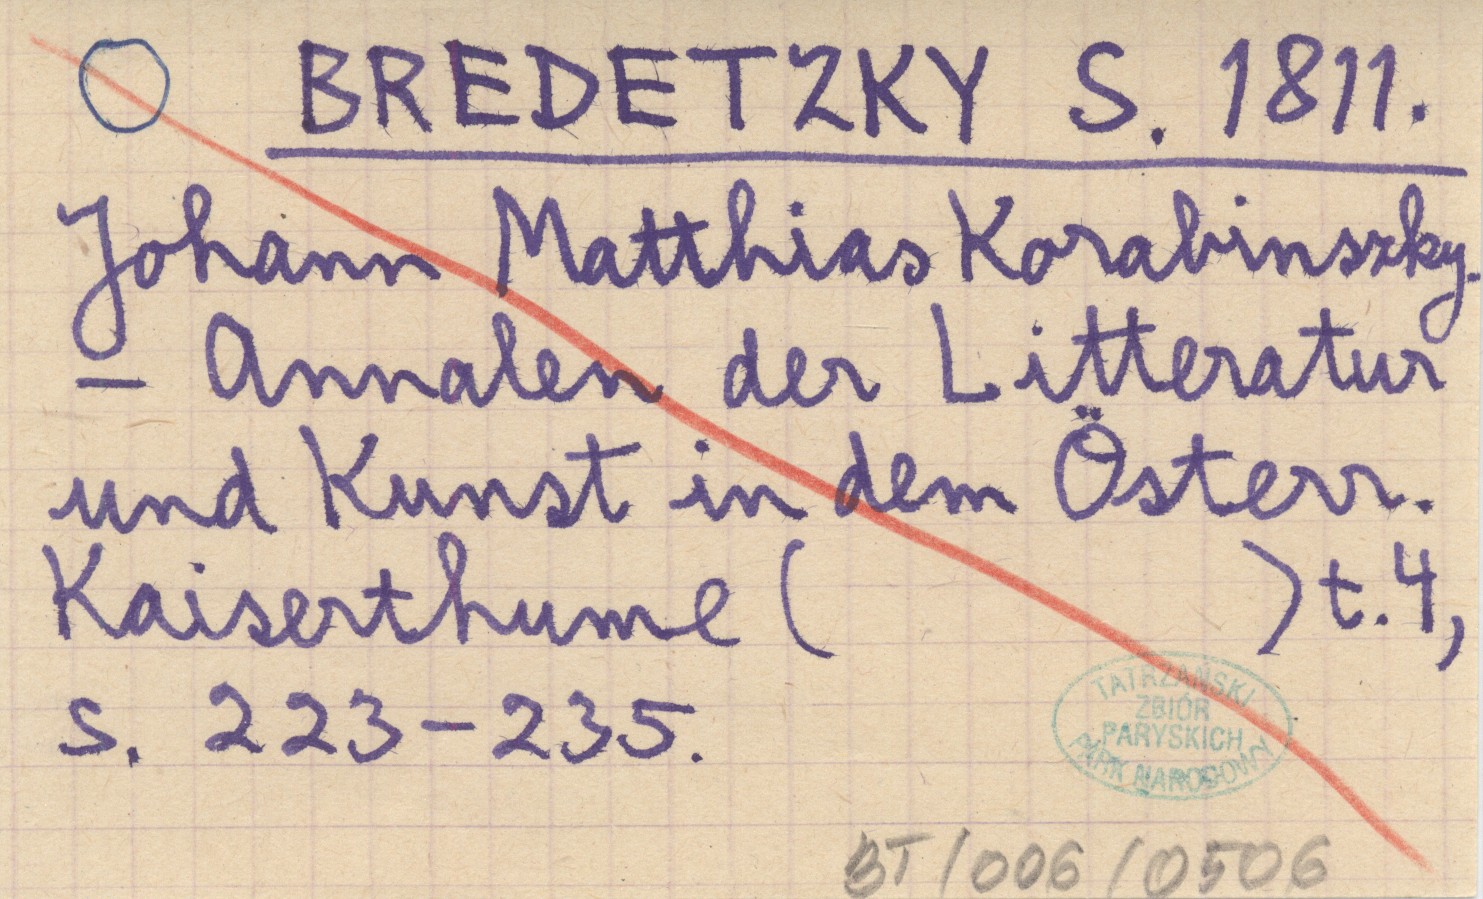 BREDETZKY S. 1811.
Johann Matthias Korabinszky.
– Annalen der Litteratur
und Kunst in dem Österr.
Kaiserthume ( ) t. 4,
s. 223–235.
TATRZAŃSKI
ZBIÓR
PARYSKICH
PARK NARODOWY
BT/006/0506